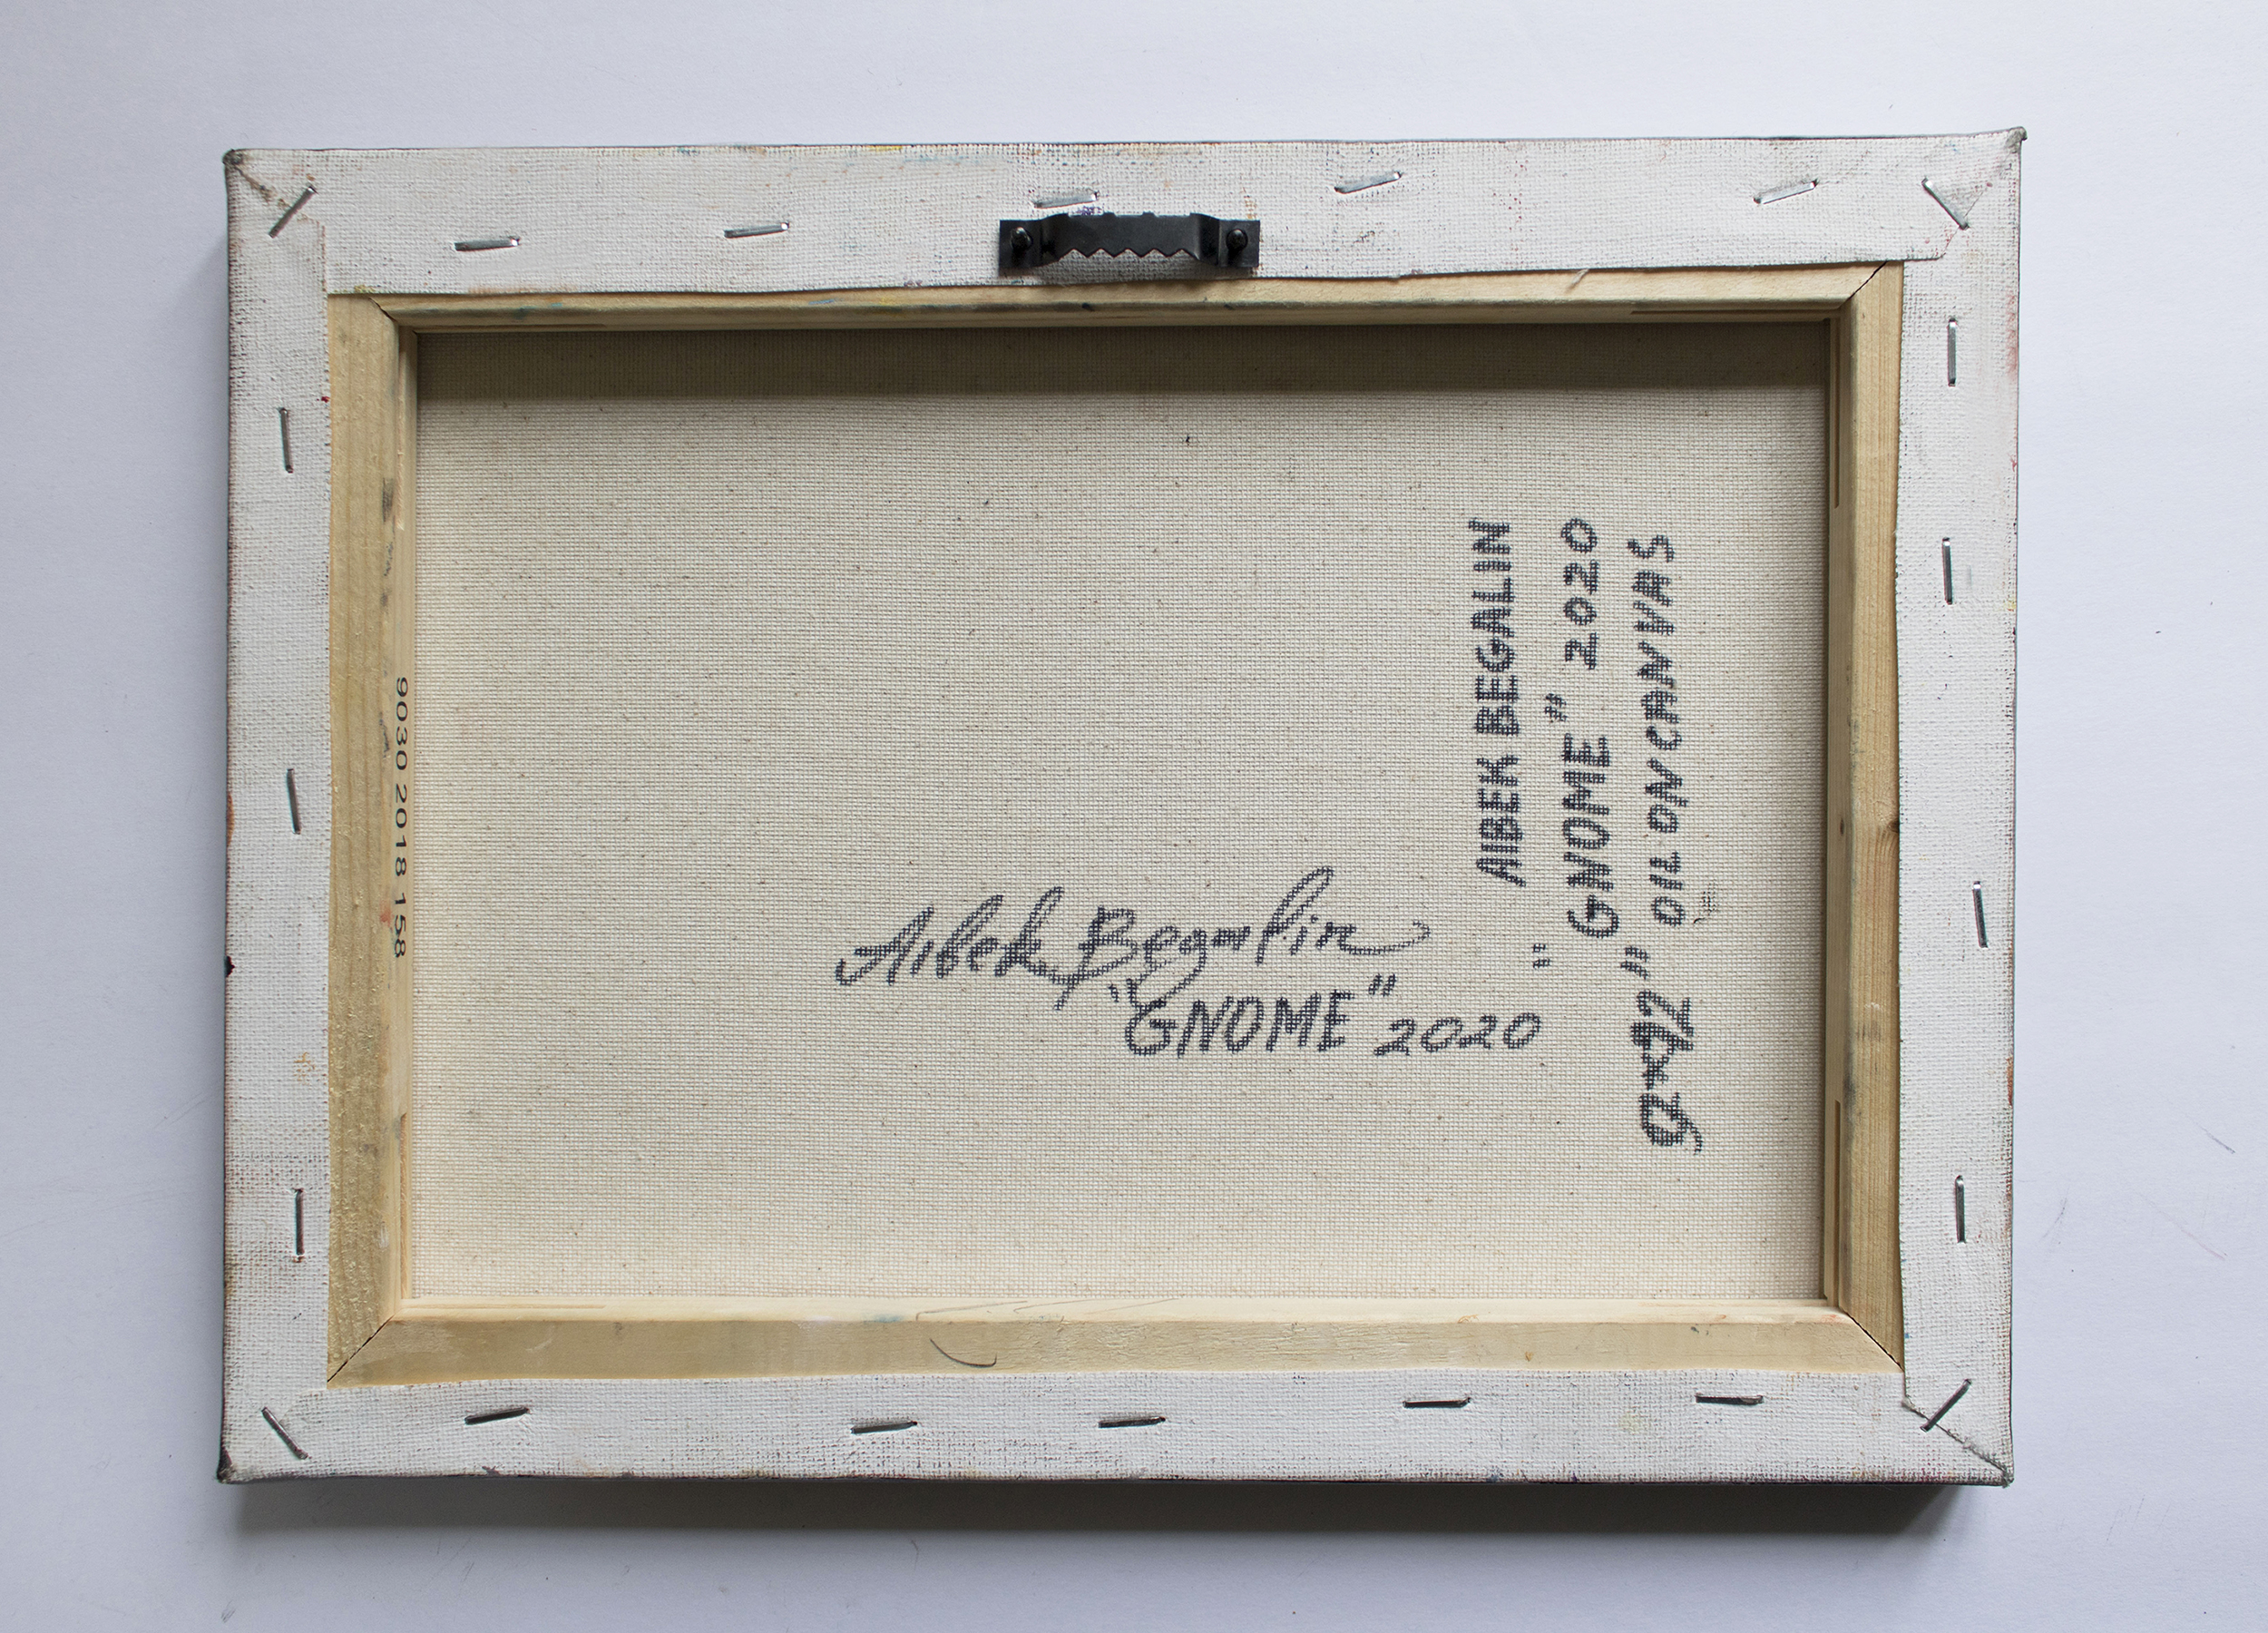 9030 2018 158
Aibek Begalin
"GNOME" 2020
AIBEK BEGALIN
"GNOME" 2020
9x12" OIL ON CANVAS